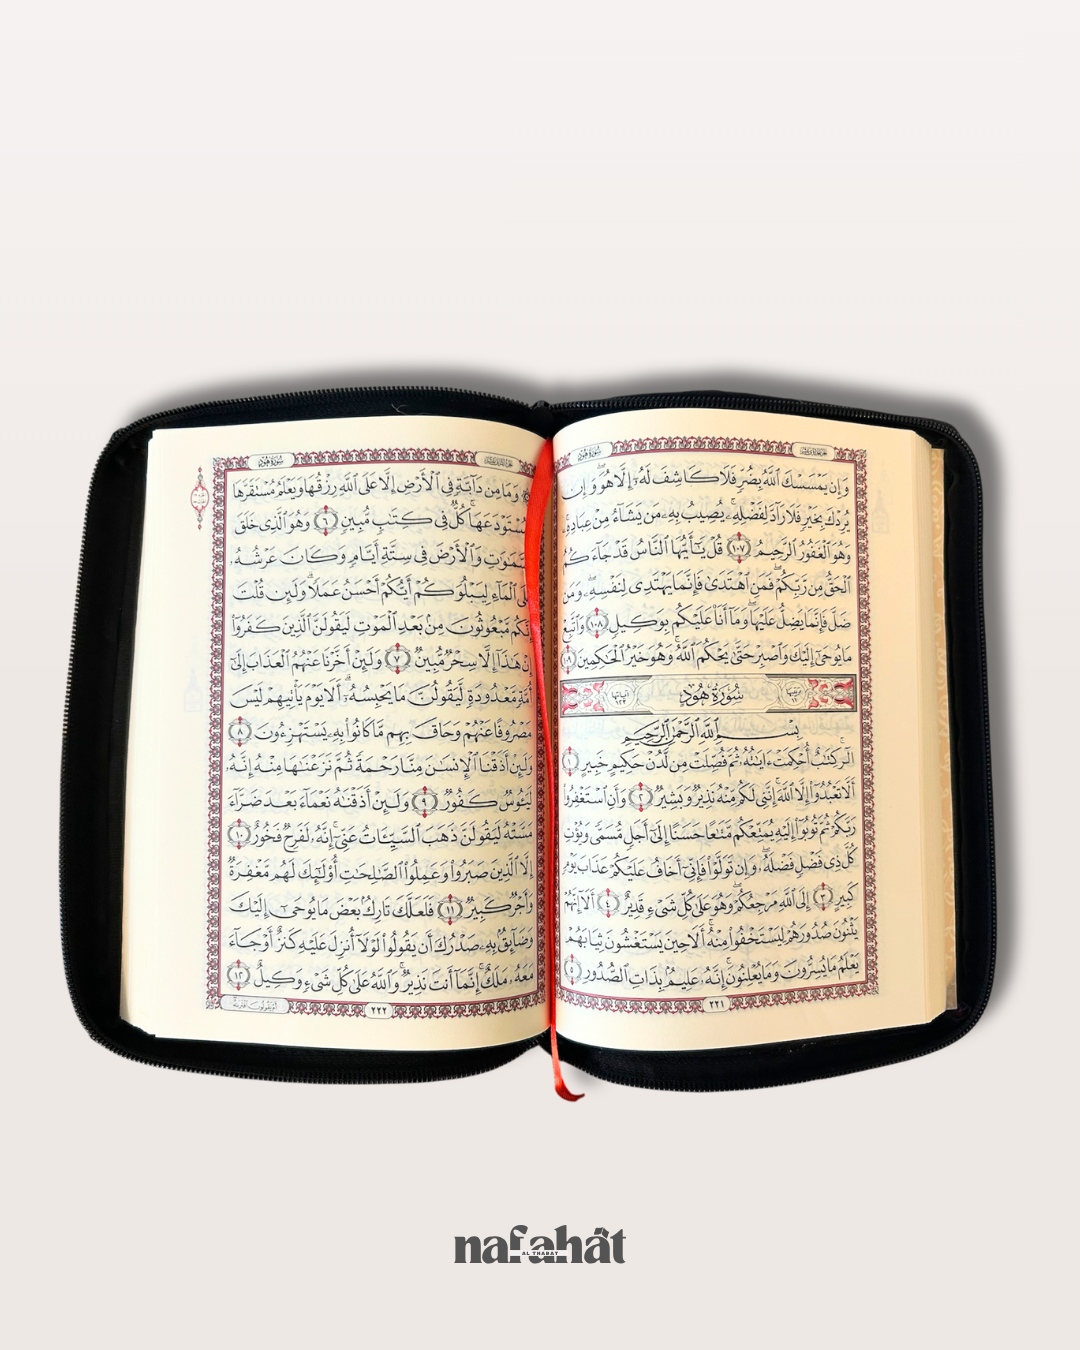 سُورَةُ هُودٍ
وَإِن يَمْسَسْكَ ٱللَّهُ بِضُرٍّ فَلَا كَاشِفَ لَهُۥٓ إِلَّا هُوَۖ وَإِن
يُرِدْكَ بِخَيْرٍ فَلَا رَآدَّ لِفَضْلِهِۦۚ يُصِيبُ بِهِۦ مَن يَشَآءُ مِنْ عِبَادِهِۦۚ
وَهُوَ ٱلْغَفُورُ ٱلرَّحِيمُ ١٠٧ قُلْ يَٰٓأَيُّهَا ٱلنَّاسُ قَدْ جَآءَكُمُ
ٱلْحَقُّ مِن رَّبِّكُمْۖ فَمَنِ ٱهْتَدَىٰ فَإِنَّمَا يَهْتَدِى لِنَفْسِهِۦۖ وَمَن
ضَلَّ فَإِنَّمَا يَضِلُّ عَلَيْهَاۖ وَمَآ أَنَا۠ عَلَيْكُم بِوَكِيلٍ ١٠٨ وَٱتَّبِعْ
مَا يُوحَىٰٓ إِلَيْكَ وَٱصْبِرْ حَتَّىٰ يَحْكُمَ ٱللَّهُۚ وَهُوَ خَيْرُ ٱلْحَٰكِمِينَ ١٠٩
سُورَةُ هُودٍ
بِسْمِ ٱللَّهِ ٱلرَّحْمَٰنِ ٱلرَّحِيمِ
الٓرۚ كِتَٰبٌ أُحْكِمَتْ ءَايَٰتُهُۥ ثُمَّ فُصِّلَتْ مِن لَّدُنْ حَكِيمٍ خَبِيرٍ ١
أَلَّا تَعْبُدُوٓا۟ إِلَّا ٱللَّهَۚ إِنَّنِى لَكُم مِّنْهُ نَذِيرٌ وَبَشِيرٌ ٢ وَأَنِ ٱسْتَغْفِرُوا۟
رَبَّكُمْ ثُمَّ تُوبُوٓا۟ إِلَيْهِ يُمَتِّعْكُم مَّتَٰعًا حَسَنًا إِلَىٰٓ أَجَلٍ مُّسَمًّى وَيُؤْتِ
كُلَّ ذِى فَضْلٍ فَضْلَهُۥۖ وَإِن تَوَلَّوْا۟ فَإِنِّىٓ أَخَافُ عَلَيْكُمْ عَذَابَ يَوْمٍ
كَبِيرٍ ٣ إِلَى ٱللَّهِ مَرْجِعُكُمْۖ وَهُوَ عَلَىٰ كُلِّ شَىْءٍ قَدِيرٌ ٤ أَلَآ إِنَّهُمْ
يَثْنُونَ صُدُورَهُمْ لِيَسْتَخْفُوا۟ مِنْهُۚ أَلَا حِينَ يَسْتَغْشُونَ ثِيَابَهُمْ
يَعْلَمُ مَا يُسِرُّونَ وَمَا يُعْلِنُونَۚ إِنَّهُۥ عَلِيمٌۢ بِذَاتِ ٱلصُّدُورِ ٥
٢٢١
سُورَةُ هُودٍ
وَمَا مِن دَآبَّةٍ فِى ٱلْأَرْضِ إِلَّا عَلَى ٱللَّهِ رِزْقُهَا وَيَعْلَمُ مُسْتَقَرَّهَا
وَمُسْتَوْدَعَهَاۚ كُلٌّ فِى كِتَٰبٍ مُّبِينٍ ٦ وَهُوَ ٱلَّذِى خَلَقَ
ٱلسَّمَٰوَٰتِ وَٱلْأَرْضَ فِى سِتَّةِ أَيَّامٍ وَكَانَ عَرْشُهُۥ
عَلَى ٱلْمَآءِ لِيَبْلُوَكُمْ أَيُّكُمْ أَحْسَنُ عَمَلًاۗ وَلَئِن قُلْتَ
إِنَّكُم مَّبْعُوثُونَ مِنۢ بَعْدِ ٱلْمَوْتِ لَيَقُولَنَّ ٱلَّذِينَ كَفَرُوٓا۟
إِنْ هَٰذَآ إِلَّا سِحْرٌ مُّبِينٌ ٧ وَلَئِنْ أَخَّرْنَا عَنْهُمُ ٱلْعَذَابَ إِلَىٰٓ
أُمَّةٍ مَّعْدُودَةٍ لَّيَقُولُنَّ مَا يَحْبِسُهُۥٓۗ أَلَا يَوْمَ يَأْتِيهِمْ لَيْسَ
مَصْرُوفًا عَنْهُمْ وَحَاقَ بِهِم مَّا كَانُوا۟ بِهِۦ يَسْتَهْزِءُونَ ٨
وَلَئِنْ أَذَقْنَا ٱلْإِنسَٰنَ مِنَّا رَحْمَةً ثُمَّ نَزَعْنَٰهَا مِنْهُ إِنَّهُۥ
لَيَـُٔوسٌ كَفُورٌ ٩ وَلَئِنْ أَذَقْنَٰهُ نَعْمَآءَ بَعْدَ ضَرَّآءَ
مَسَّتْهُ لَيَقُولَنَّ ذَهَبَ ٱلسَّيِّـَٔاتُ عَنِّىٓۚ إِنَّهُۥ لَفَرِحٌ فَخُورٌ ١٠
إِلَّا ٱلَّذِينَ صَبَرُوا۟ وَعَمِلُوا۟ ٱلصَّٰلِحَٰتِ أُو۟لَٰٓئِكَ لَهُم مَّغْفِرَةٌ
وَأَجْرٌ كَبِيرٌ ١١ فَلَعَلَّكَ تَارِكٌۢ بَعْضَ مَا يُوحَىٰٓ إِلَيْكَ
وَضَآئِقٌۢ بِهِۦ صَدْرُكَ أَن يَقُولُوا۟ لَوْلَآ أُنزِلَ عَلَيْهِ كَنزٌ أَوْ جَآءَ
مَعَهُۥ مَلَكٌۚ إِنَّمَآ أَنتَ نَذِيرٌۚ وَٱللَّهُ عَلَىٰ كُلِّ شَىْءٍ وَكِيلٌ ١٢
٢٢٢
nafahât
AL THABAT